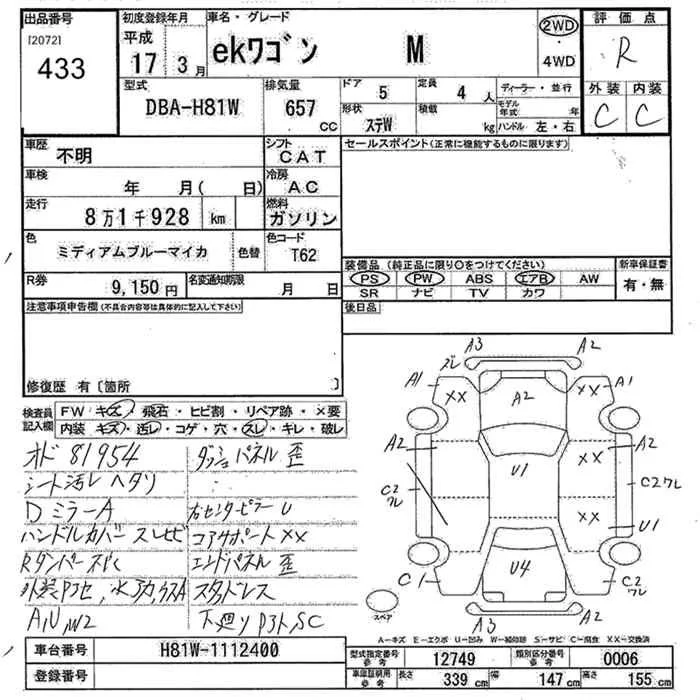 出品番号 初度登録年月 車名・グレード ②WD 評価点
[2072]
433
平成 17 3月
ekワゴン M
4WD
R
型式 排気量 ドア 定員 ディーラー・並行 外装 内装
DBA-H81W 657 CC 5 4人 モデル年式 年
形状 ステW 積載 kg ハンドル 左・右
C C
車歴 不明 シフト CAT セールスポイント(正常に機能するものに限ります)
車検 年 月( 日) 冷房 AC
走行 8万1千928 km 燃料 ガソリン
色 ミディアムブルーマイカ 色替 色コード T62
装備品(純正品に限り〇をつけてください) 新車保証書
R券 9,150円 名変通知期限 月 日
PS PW ABS エアB AW 有・無
SR ナビ TV カワ
注意事項申告欄(不具合内容等は具体的に記入して下さい) 後日品
修復歴 有〔箇所 〕
検査員記入欄 FW キズ・飛石・ヒビ割・リペア跡・×要
内装 キズ・汚レ・コゲ・穴・スレ・キレ・破レ
オド 81954 ダッシュパネル歪
シート汚レ ヘタリ
Dミラー A 右センターピラー U
ハンドルカバー スレ コアサポート XX
Rダンパー エンドパネル歪
スタッドレス
下廻り SC
A3 A2
ズレ
A1 XX A2 XX A1
A2 U1 XX A2
C2 ワレ C2ワレ
XX U1
C1 U4 C2 ワレ
A3 A2
スペア
A-キズ E-エクボ U-凹み W-補修跡 S-サビ C-腐食 XX-交換済
車台番号 H81W-1112400
型式指定番号 参考 12749 類別区分番号 参考 0006
登録番号
車庫証明用 参考 長さ 339 cm 幅 147 cm 高さ 155 cm